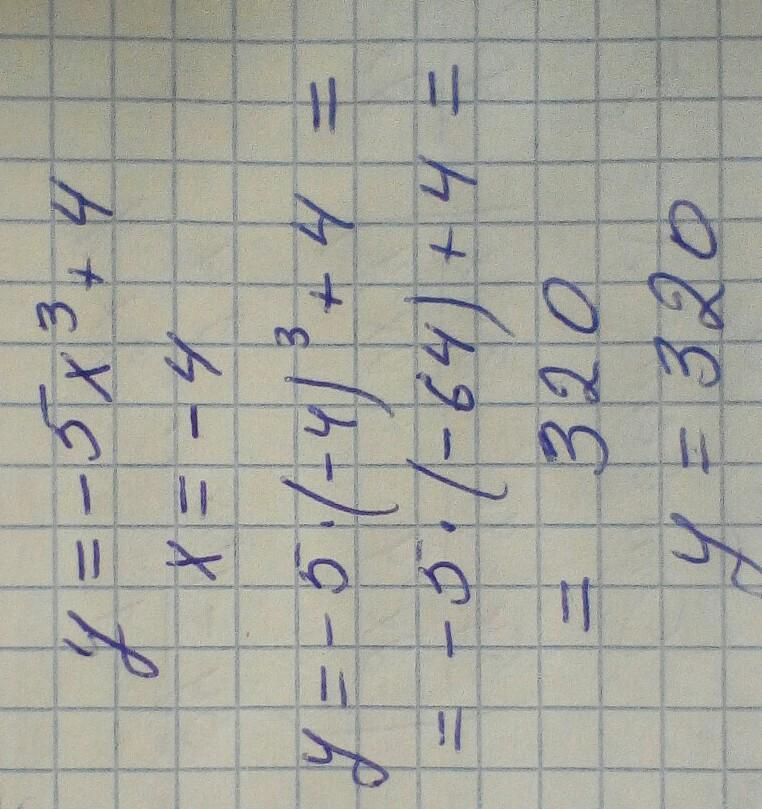 y = -5x³ + 4
x = -4
y = -5·(-4)³ + 4 =
= -5·(-64) + 4 =
= 320
y = 320